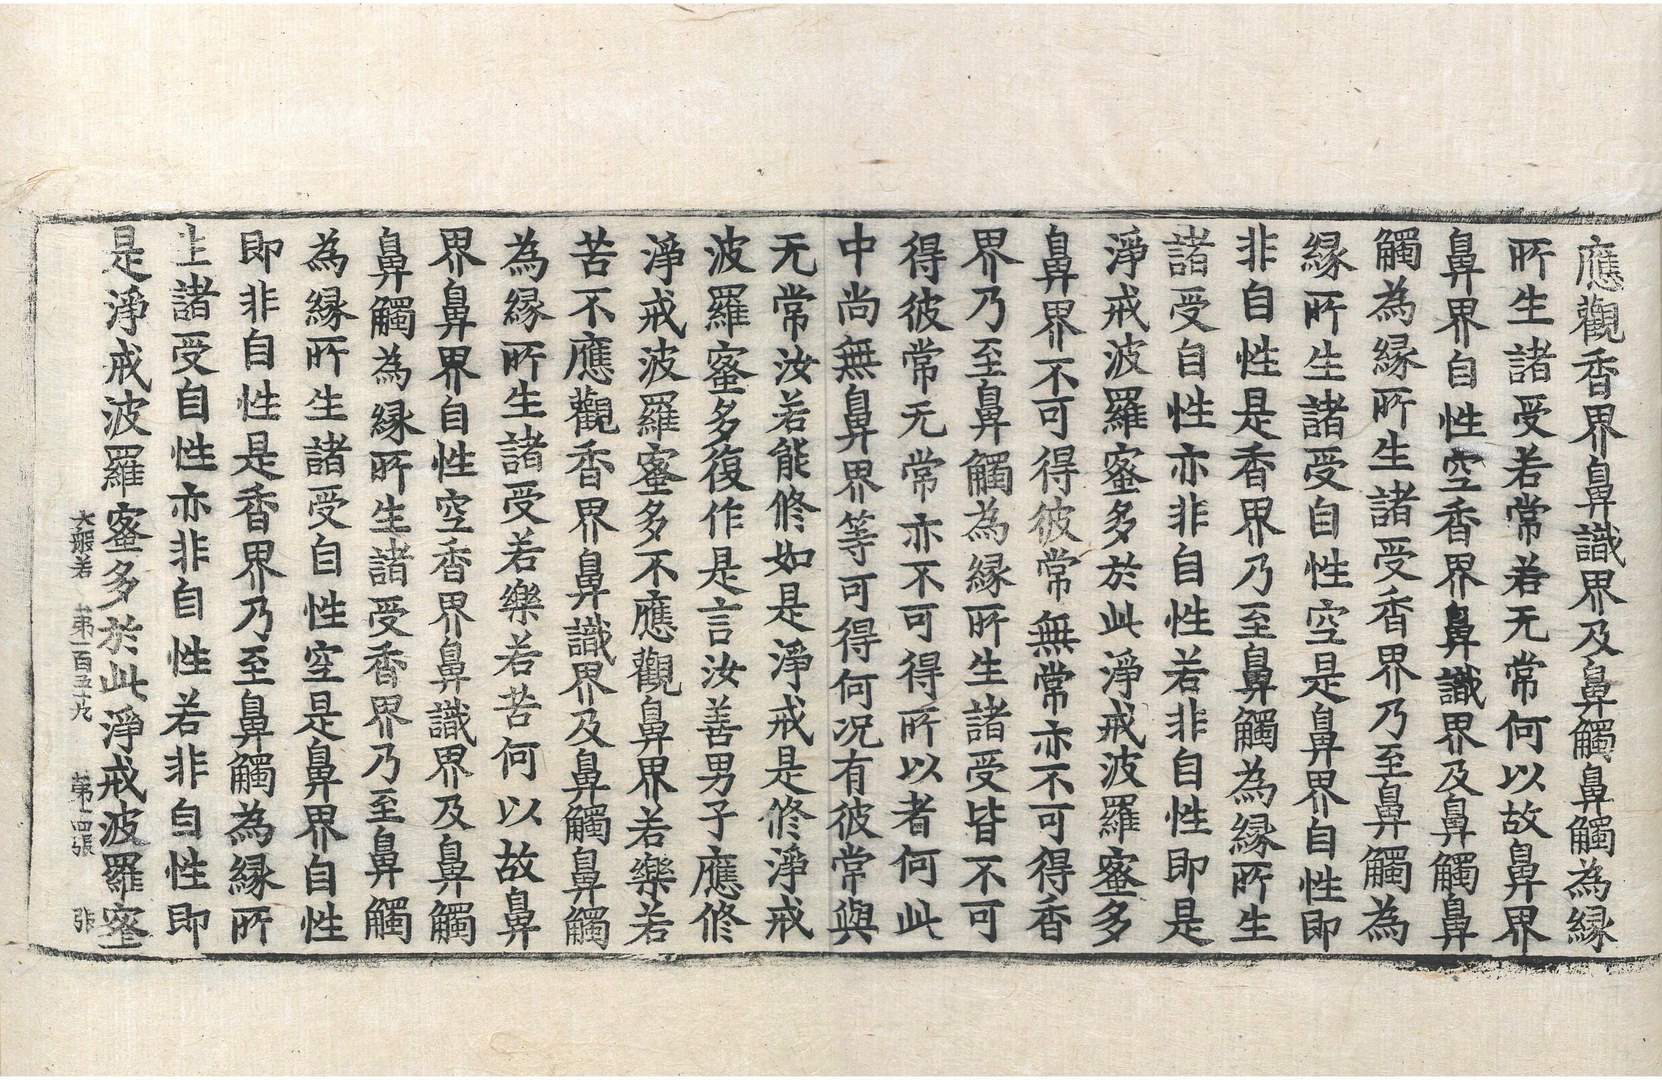 應觀香界鼻識界及鼻觸鼻觸為緣
所生諸受若常若无常何以故鼻界
鼻界自性空香界鼻識界及鼻觸鼻
觸為緣所生諸受香界乃至鼻觸為
緣所生諸受自性空是鼻界自性即
非自性是香界乃至鼻觸為緣所生
諸受自性亦非自性若非自性即是
淨戒波羅蜜多於此淨戒波羅蜜多
鼻界不可得彼常無常亦不可得香
界乃至鼻觸為緣所生諸受皆不可
得彼常无常亦不可得所以者何此
中尚無鼻界等可得何況有彼常與
无常汝若能修如是淨戒是修淨戒
波羅蜜多復作是言汝善男子應修
淨戒波羅蜜多不應觀鼻界若樂若
苦不應觀香界鼻識界及鼻觸鼻觸
為緣所生諸受若樂若苦何以故鼻
界鼻界自性空香界鼻識界及鼻觸
鼻觸為緣所生諸受香界乃至鼻觸
為緣所生諸受自性空是鼻界自性
即非自性是香界乃至鼻觸為緣所
生諸受自性亦非自性若非自性即
是淨戒波羅蜜多於此淨戒波羅蜜
大般若 第一百五十九 第十四張